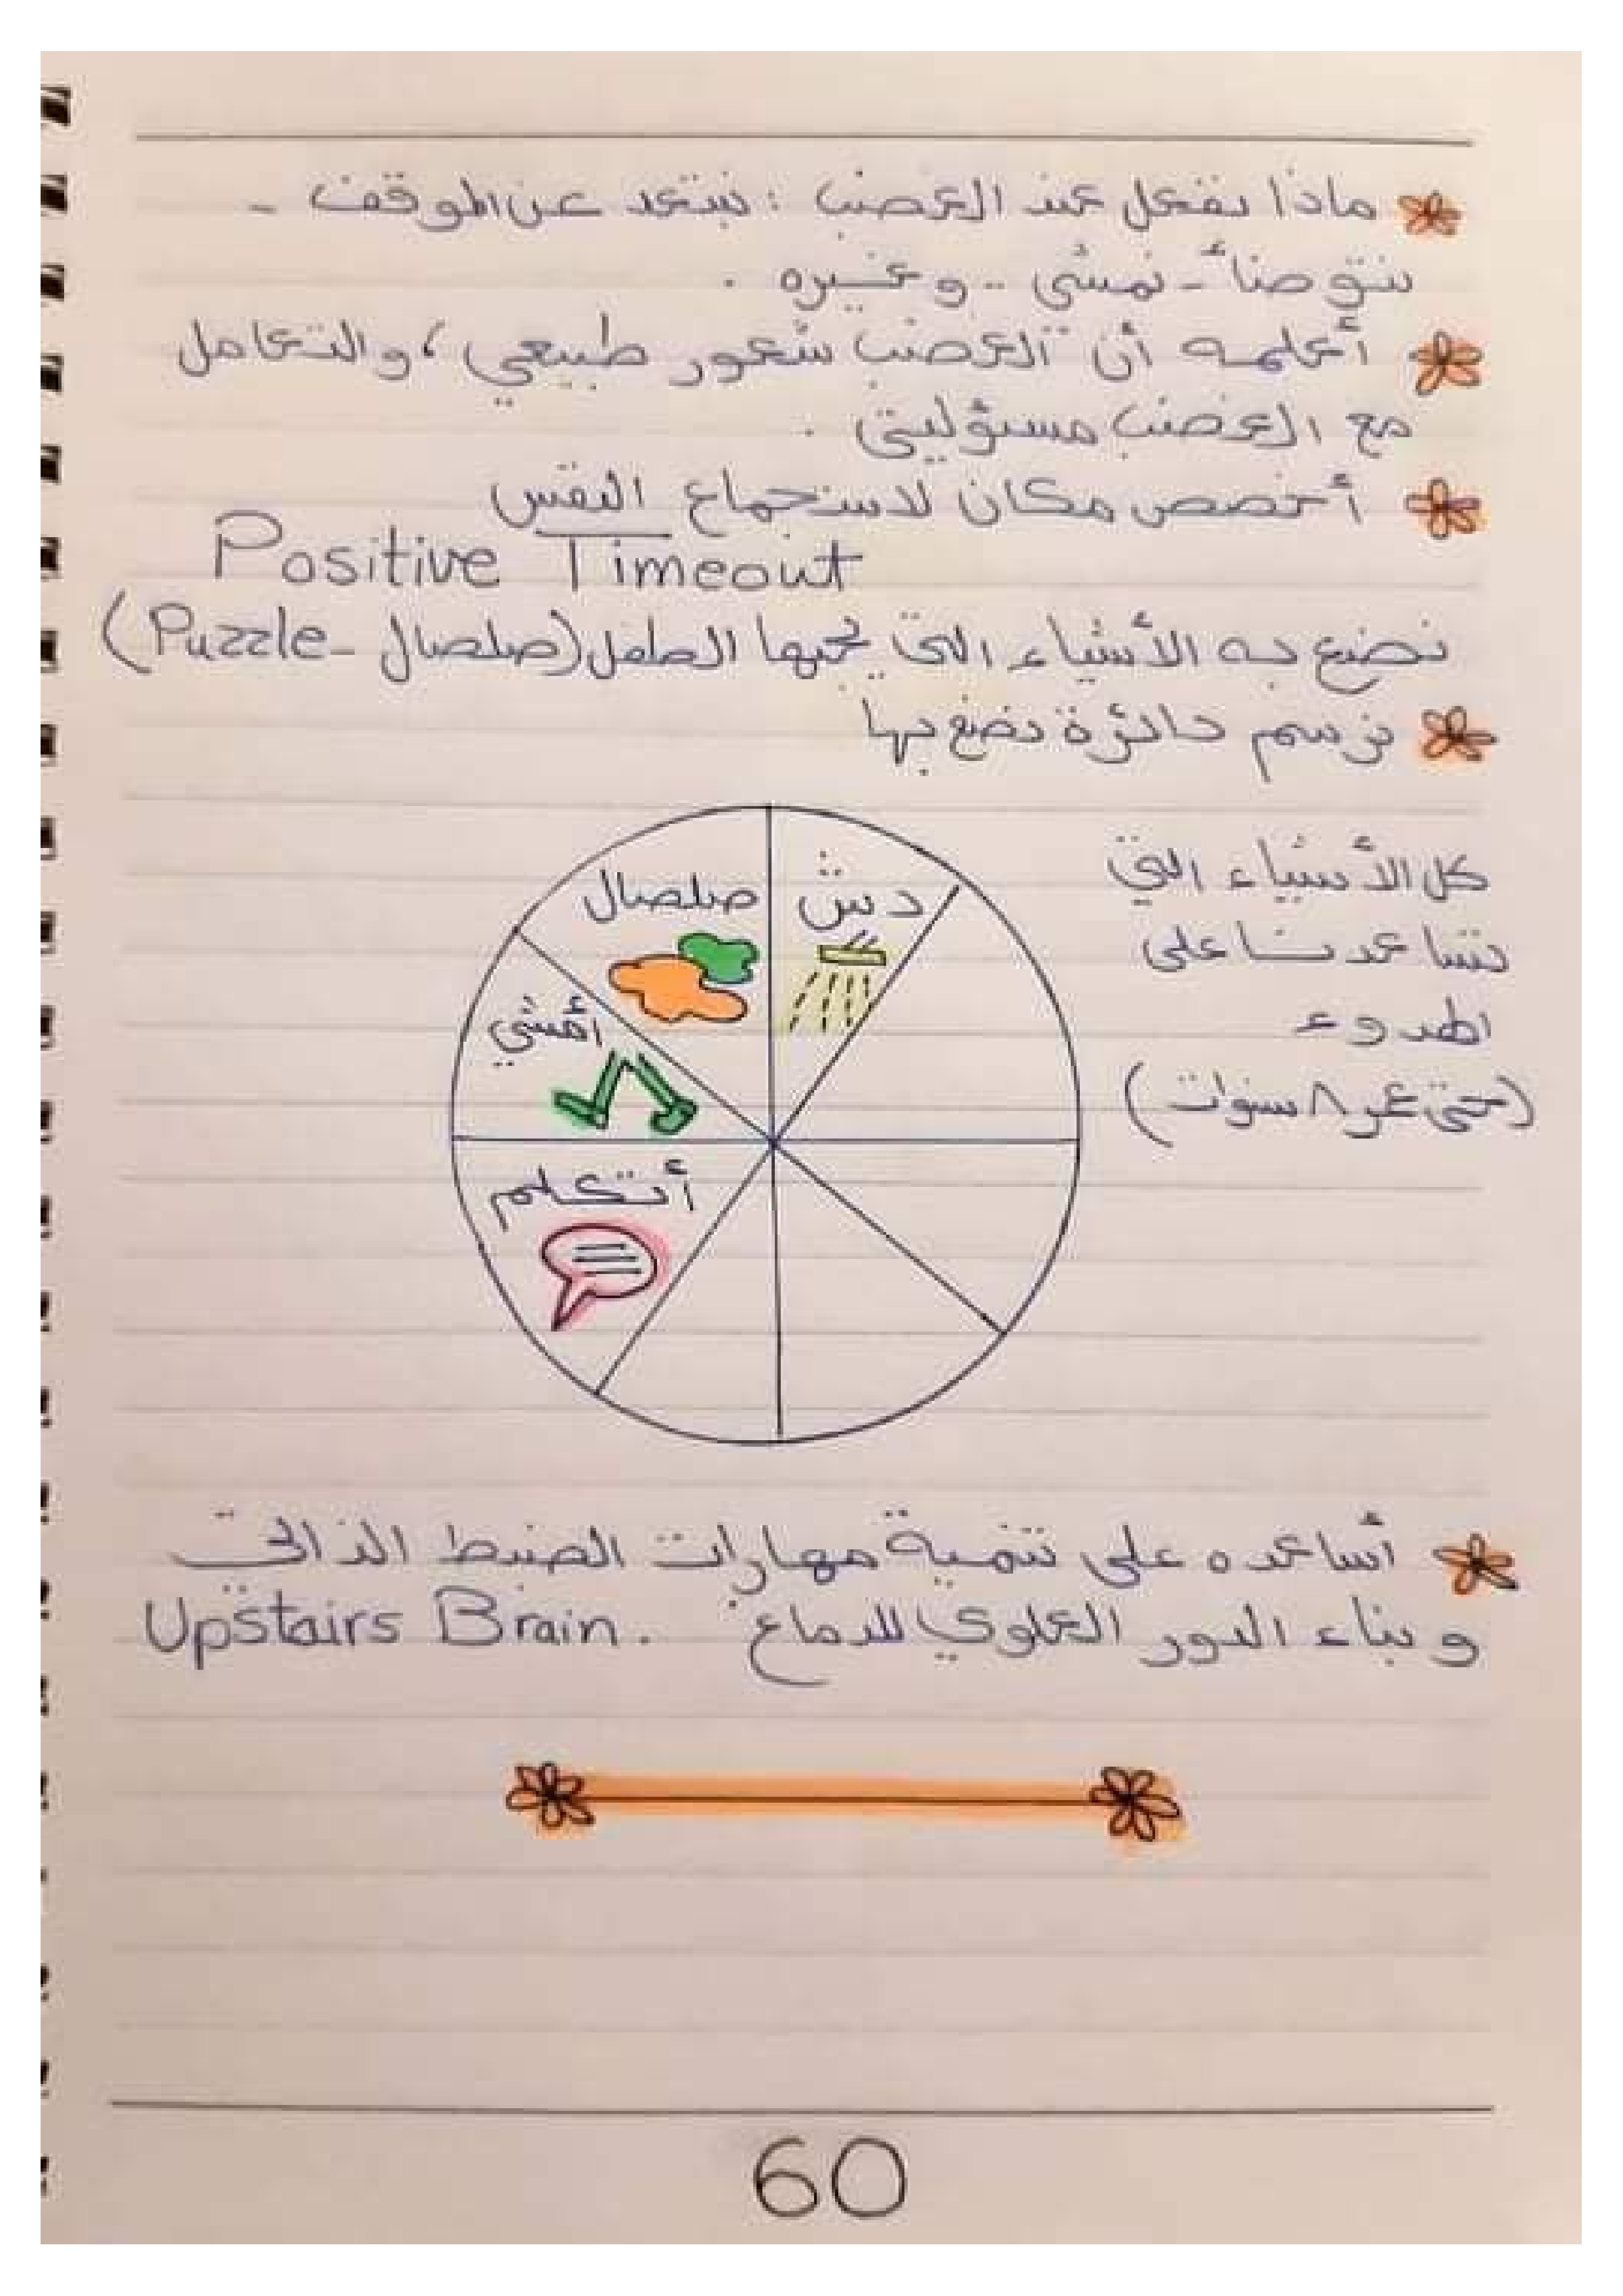 ماذا نفعل عند الغضب : نبتعد عن الموقف -
نتوضأ - نمشي .. وغيره .
أعلمه أن الغضب شعور طبيعي ، والتعامل
مع الغضب مسؤليتي .
أخصص مكان لاستجماع النفس
Positive Timeout
نضع به الأشياء التي يحبها الطفل (صلصال - Puzzle)
نرسم دائرة نضع بها
كل الأشياء التي
تساعدنا على
الهدوء
(حتى عمر ٨ سنوات)
دش
صلصال
أمشي
أتكلم
أساعده على تنمية مهارات الضبط الذاتي
وبناء الدور العلوي للدماغ . Upstairs Brain
60